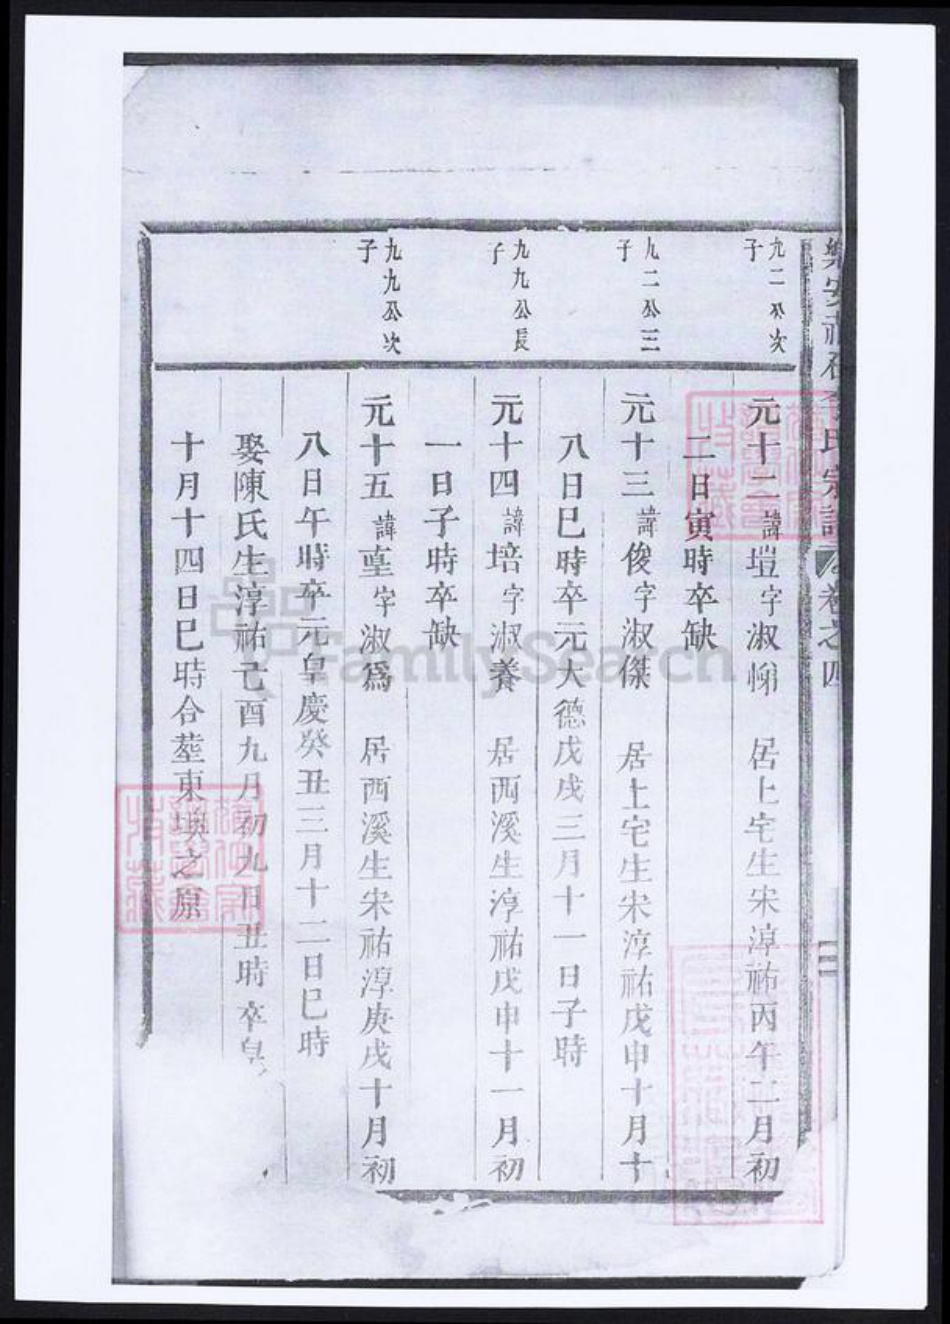 樂安 氏宗譜 卷之四
九二公次子
元十二諱塏字淑悌 居上宅生宋淳祐丙午二月初
二日寅時卒缺
九二公三子
元十三諱俊字淑傑 居上宅生宋淳祐戊申十月十
八日巳時卒元大德戊戌三月十一日子時
九九公長子
元十四諱培字淑養 居西溪生淳祐戊申十一月初
一日子時卒缺
九九公次子
元十五諱 字淑為 居西溪生宋祐淳庚戌十月初
八日午時卒元皇慶癸丑三月十二日巳時
娶陳氏生淳祐己酉九月初九日丑時卒皇
十月十四日巳時合塟東 之原
FamilySearch